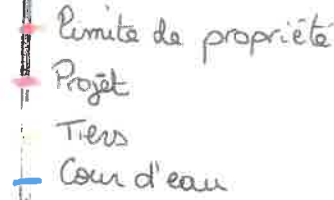 Limite de propriété
Projet
Tiers
Cour d'eau